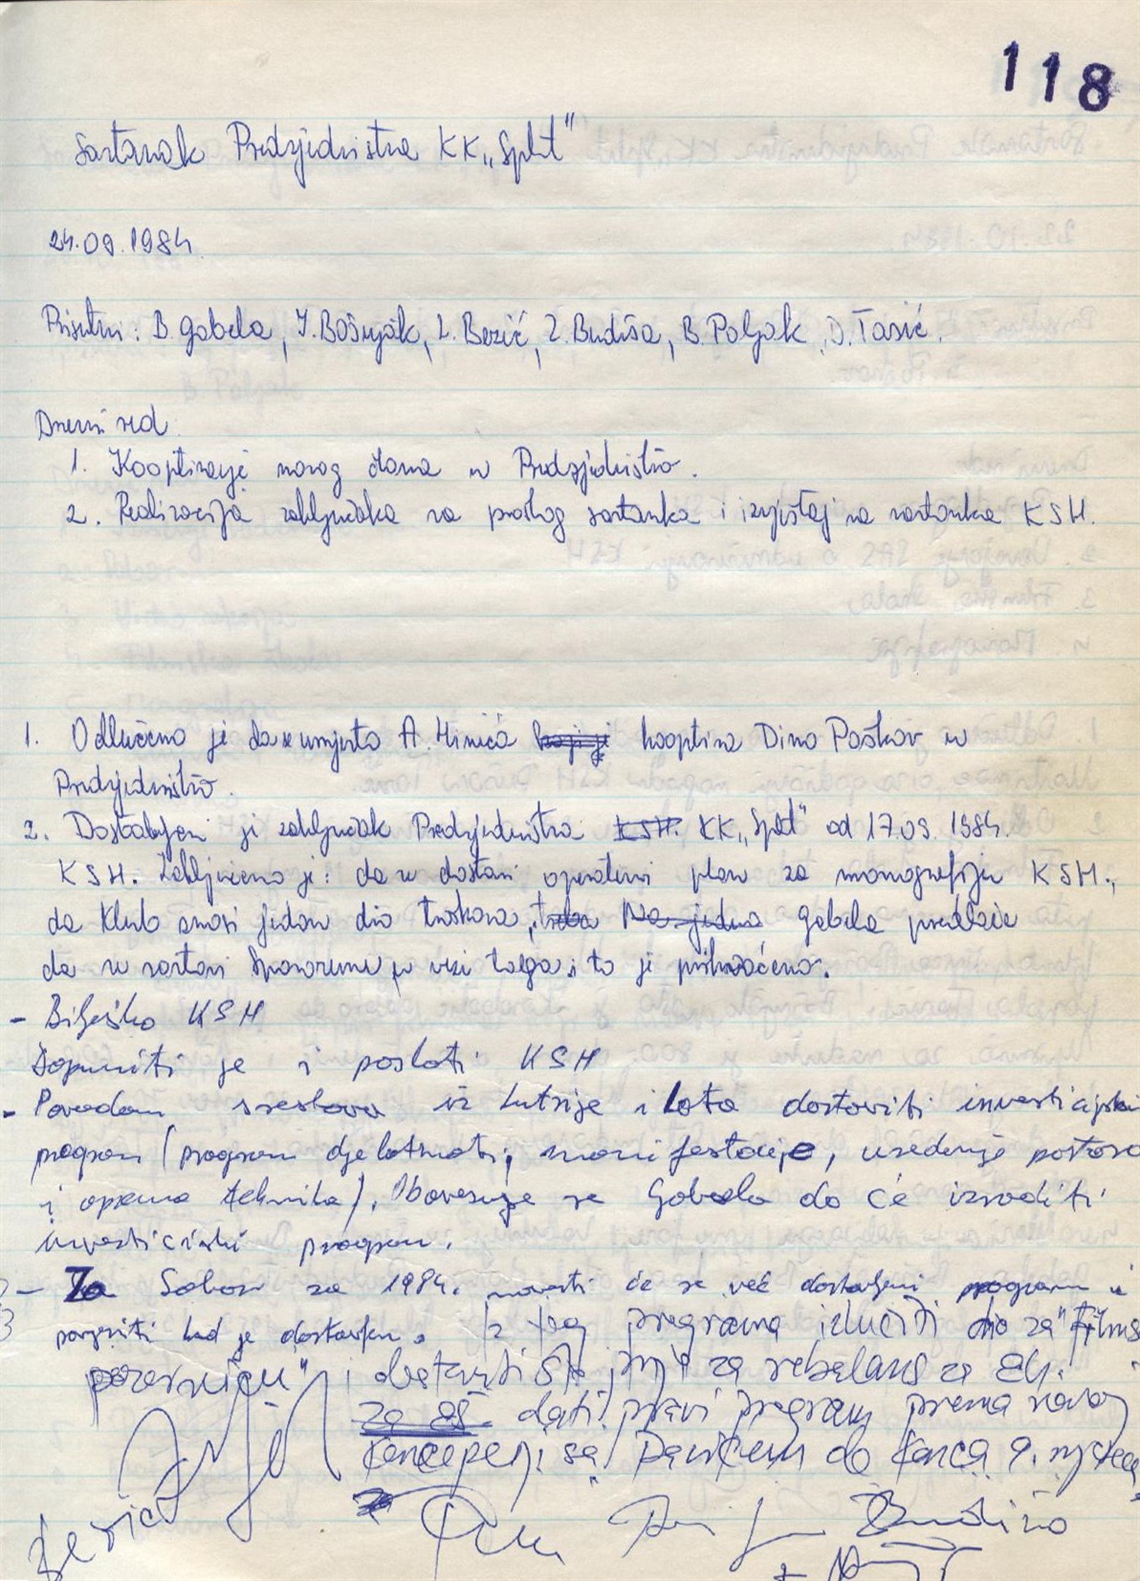 118
Sastanak Predsjedništva KK „Split"
24.09.1984.
Prisutni: B. Gabela, I. Bošnjak, L. Bezić, Z. Budiša, B. Poljak, D. Tasić.
Dnevni red
1. Kooptiranje novog člana u Predsjedništvo.
2. Realizacija zaključaka sa prošlog sastanka i izvještaj sa sastanka KSH.
1. Odlučeno je da se umjesto A. koji je kooptira Dino Poškov u
Predsjedništvo.
2. Dostavljen je zaključak Predsjedništva KSH. KK „Split" od 17.09. 1984.
KSH. Zaključeno je: da se dostavi operativni plan za monografiju KSH.,
da Klub snosi jedan dio troškova, treba Gabela predlaže
da se sastavi Sporazum u vezi toga i to je prihvaćeno.
- Bilješka KSH
Dopuniti je i poslati KSH
- Povodom sredstava iz Lutrije i Lota dostaviti investicijski
program (program djelatnosti, manifestacije, uređenje
i oprema tehnika). Obavezuje se Gabela da će izraditi
investicijski program.
- Za Sabor za 1984. će se već dostavljeni program i
kad je dostavljen. Iz tog programa izlučiti dio za "Filmsku
i dostaviti za rebalans za 84.
za 85. dati pravi program prema novoj
koncepciji sa do konca 9. mjeseca
Bezić
Budiša